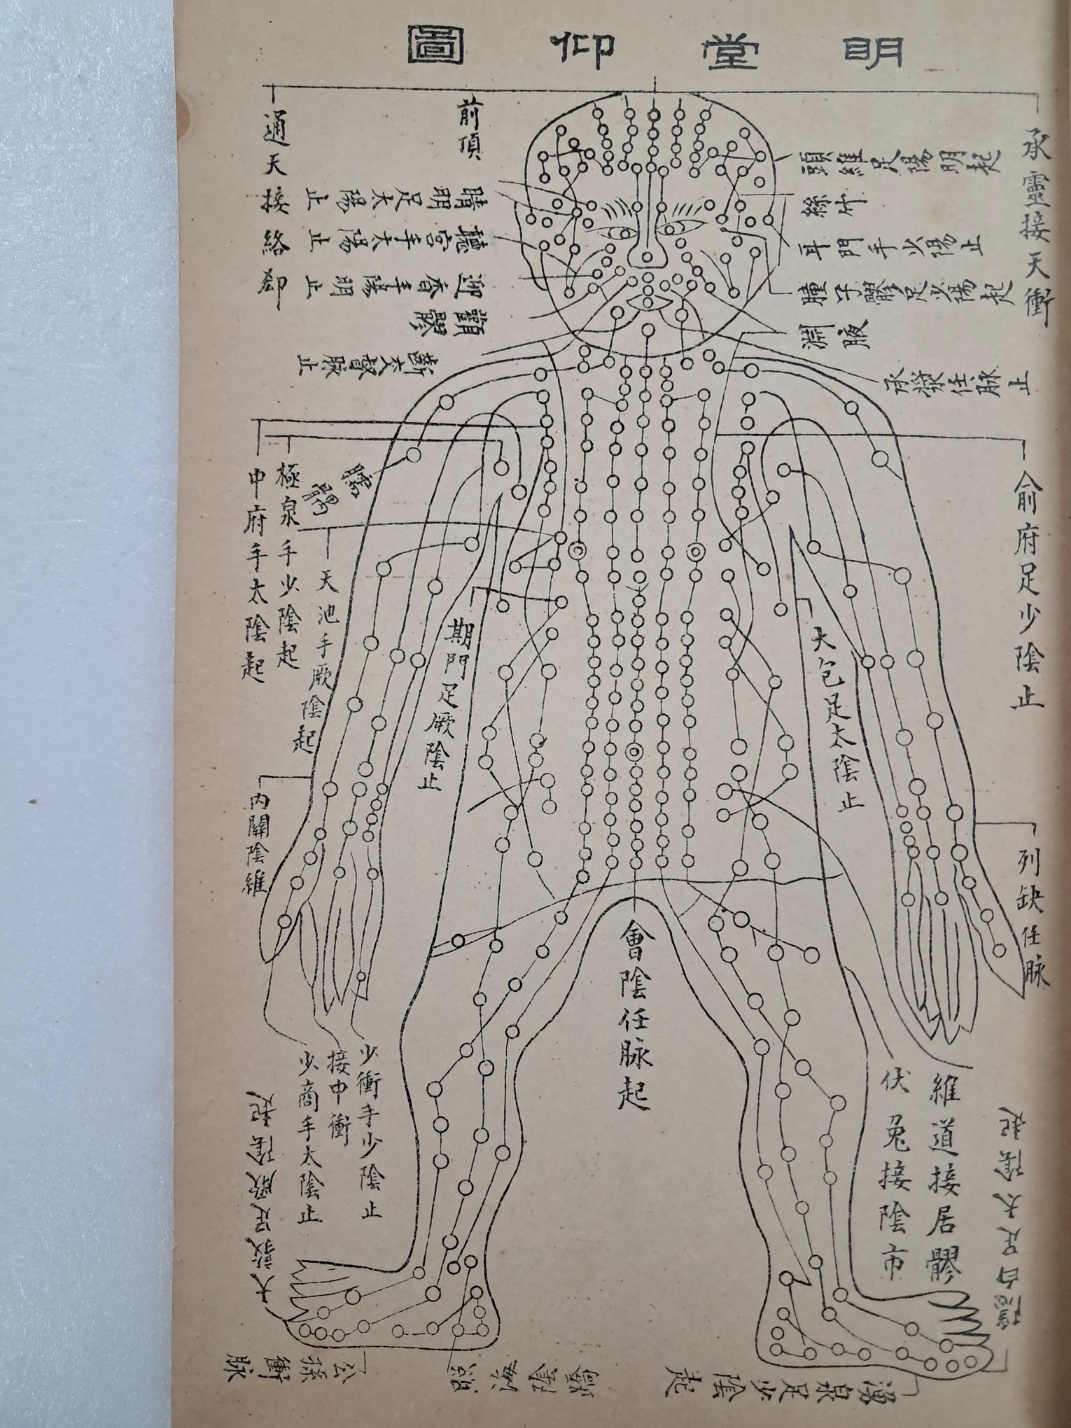 明堂仰圖
承靈接天衝
頭維足陽明起
絲竹
耳門手少陽止
瞳子髎足少陽起
淵腋
承漿任脈止
前頂
通天接絡郄
睛明足太陽止
聽宮手太陽止
迎香手陽明止
顴髎
齗交督脈止
俞府足少陰止
臑髎
極泉手少陰起
中府手太陰起
天池手厥陰起
期門足厥陰止
大包足太陰止
內關陰維
列缺任脈
會陰任脈起
少衝手少陰止
接中衝
少商手太陰止
大敦足厥陰起
維道接居髎
伏兔接陰市
隱白足太陰起
公孫衝脈
湧泉足少陰起